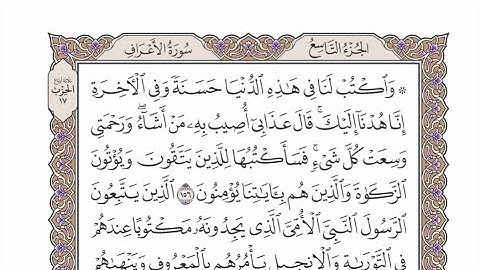 الجُزْءُ التَّاسِعُ
سُورَةُ الأَعْرَافِ
الحِزْبِ
١٧
۞ وَٱكْتُبْ لَنَا فِى هَٰذِهِ ٱلدُّنْيَا حَسَنَةً وَفِى ٱلْأَخِرَةِ
إِنَّا هُدْنَآ إِلَيْكَ ۚ قَالَ عَذَابِىٓ أُصِيبُ بِهِۦ مَنْ أَشَآءُ ۖ وَرَحْمَتِى
وَسِعَتْ كُلَّ شَىْءٍ ۚ فَسَأَكْتُبُهَا لِلَّذِينَ يَتَّقُونَ وَيُؤْتُونَ
ٱلزَّكَوٰةَ وَٱلَّذِينَ هُم بِـَٔايَٰتِنَا يُؤْمِنُونَ ١٥٦ ٱلَّذِينَ يَتَّبِعُونَ
ٱلرَّسُولَ ٱلنَّبِىَّ ٱلْأُمِّىَّ ٱلَّذِى يَجِدُونَهُۥ مَكْتُوبًا عِندَهُمْ
فِى ٱلتَّوْرَىٰةِ وَٱلْإِنجِيلِ يَأْمُرُهُم بِٱلْمَعْرُوفِ وَيَنْهَىٰهُمْ